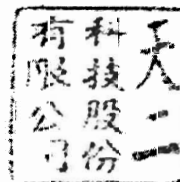 天二
科技股份
有限公司